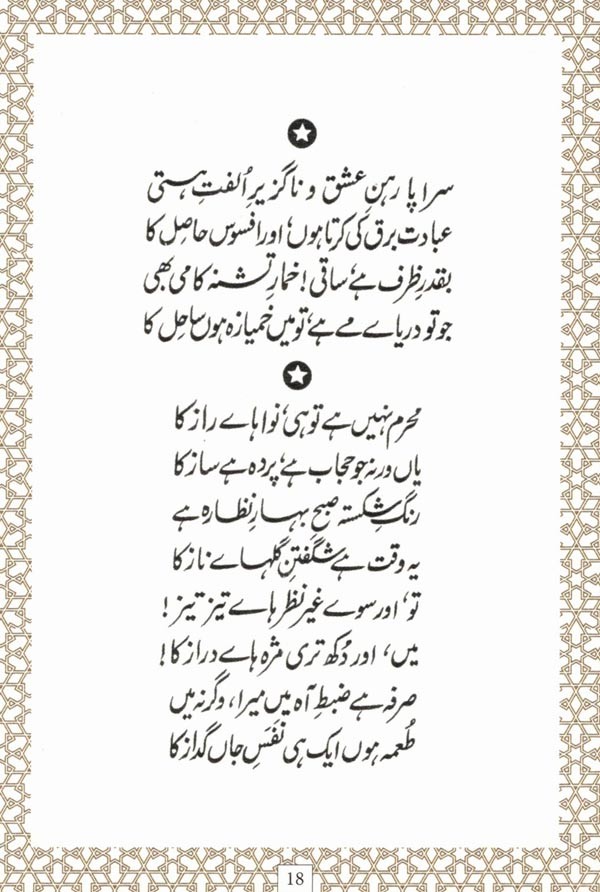 سراپا رہنِ عشق و ناگزیرِ اُلفتِ ہستی
عبادت برق کی کرتا ہوں، اور افسوس حاصِل کا
بقدرِ ظرف ہے، ساقی! خمارِ تشنہ کامی بھی
جو تو دریاے مے ہے، تو میں خمیازہ ہوں ساحِل کا
محرم نہیں ہے تو ہی، نوا ہاے راز کا
یاں ورنہ جو حجاب ہے، پردہ ہے ساز کا
رنگِ شکستہ صبحِ بہارِ نظارہ ہے
یہ وقت ہے شگفتنِ گلہاے ناز کا
تو، اور سوے غیر نظر ہاے تیز تیز!
میں، اور دُکھ تری مژہ ہاے دراز کا!
صرفہ ہے ضبطِ آہ میں میرا، وگرنہ میں
طُعمہ ہوں ایک ہی نفَسِ جاں گداز کا
18